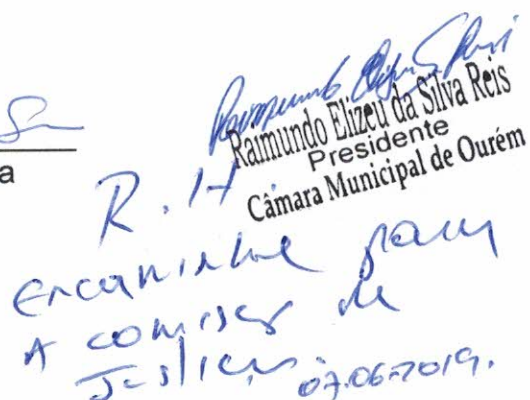 Raimundo Elizeu da Silva Reis
Presidente
Câmara Municipal de Ourém
a
R. H.
Encaminhe para
A comissão de
Justiça.
07.06.2019.